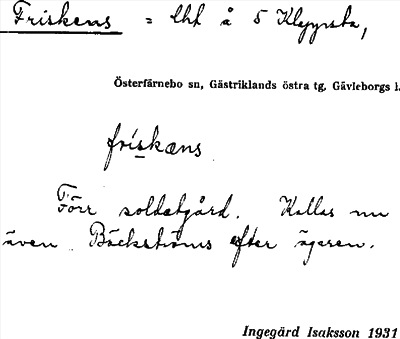 Friskens = lht å 5 Klappsta,
Österfärnebo sn, Gästriklands östra tg, Gävleborgs l.
friskæns
Förr soldatgård. Kallas nu
även Bäckströms efter ägaren.
Ingegärd Isaksson 1931